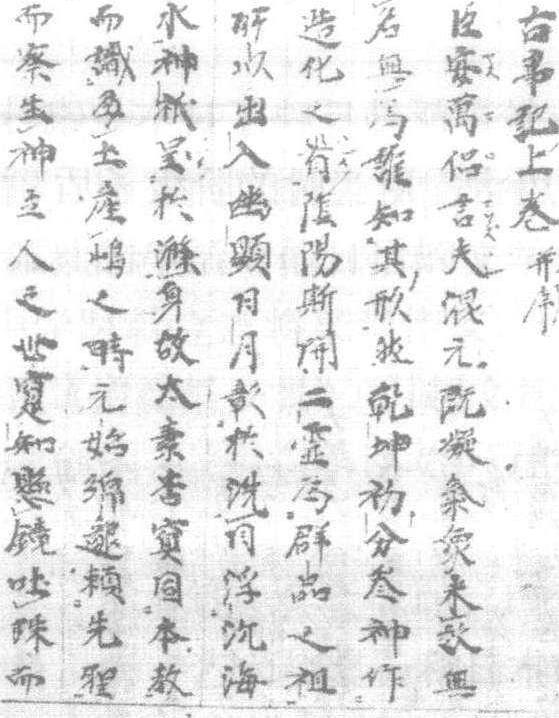 古事記上卷 并序
臣安萬侶言夫混元既凝氣象未效無
名無為誰知其形然乾坤初分參神作
造化之首陰陽斯開二靈為群品之祖
所以出入幽顯日月彰於洗目浮沉海
水神祇呈於滌身故太素杳冥因本教
而識孕土產嶋之時元始綿邈頼先聖
而察生神立人之世寔知懸鏡吐珠而